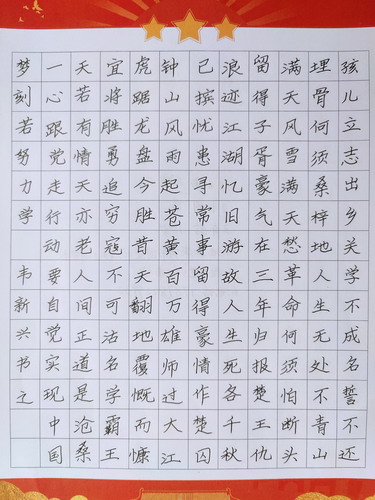 孩儿立志出乡关学不成名誓不还
埋骨何须桑梓地人生无处不青山
满天风雪满天愁革命何须怕断头
留得子胥豪气在三年归报楚王仇
浪迹江湖忆旧游故人生死各千秋
已摈忧患寻常事留得豪情作楚囚
钟山风雨起苍黄百万雄师过大江
虎踞龙盘今胜昔天翻地覆慨而慷
宜将胜勇追穷寇不可沽名学霸王
天若有情天亦老人间正道是沧桑
一心跟党走行动要自觉实现中国
梦刻若努力学 韦新兴书之